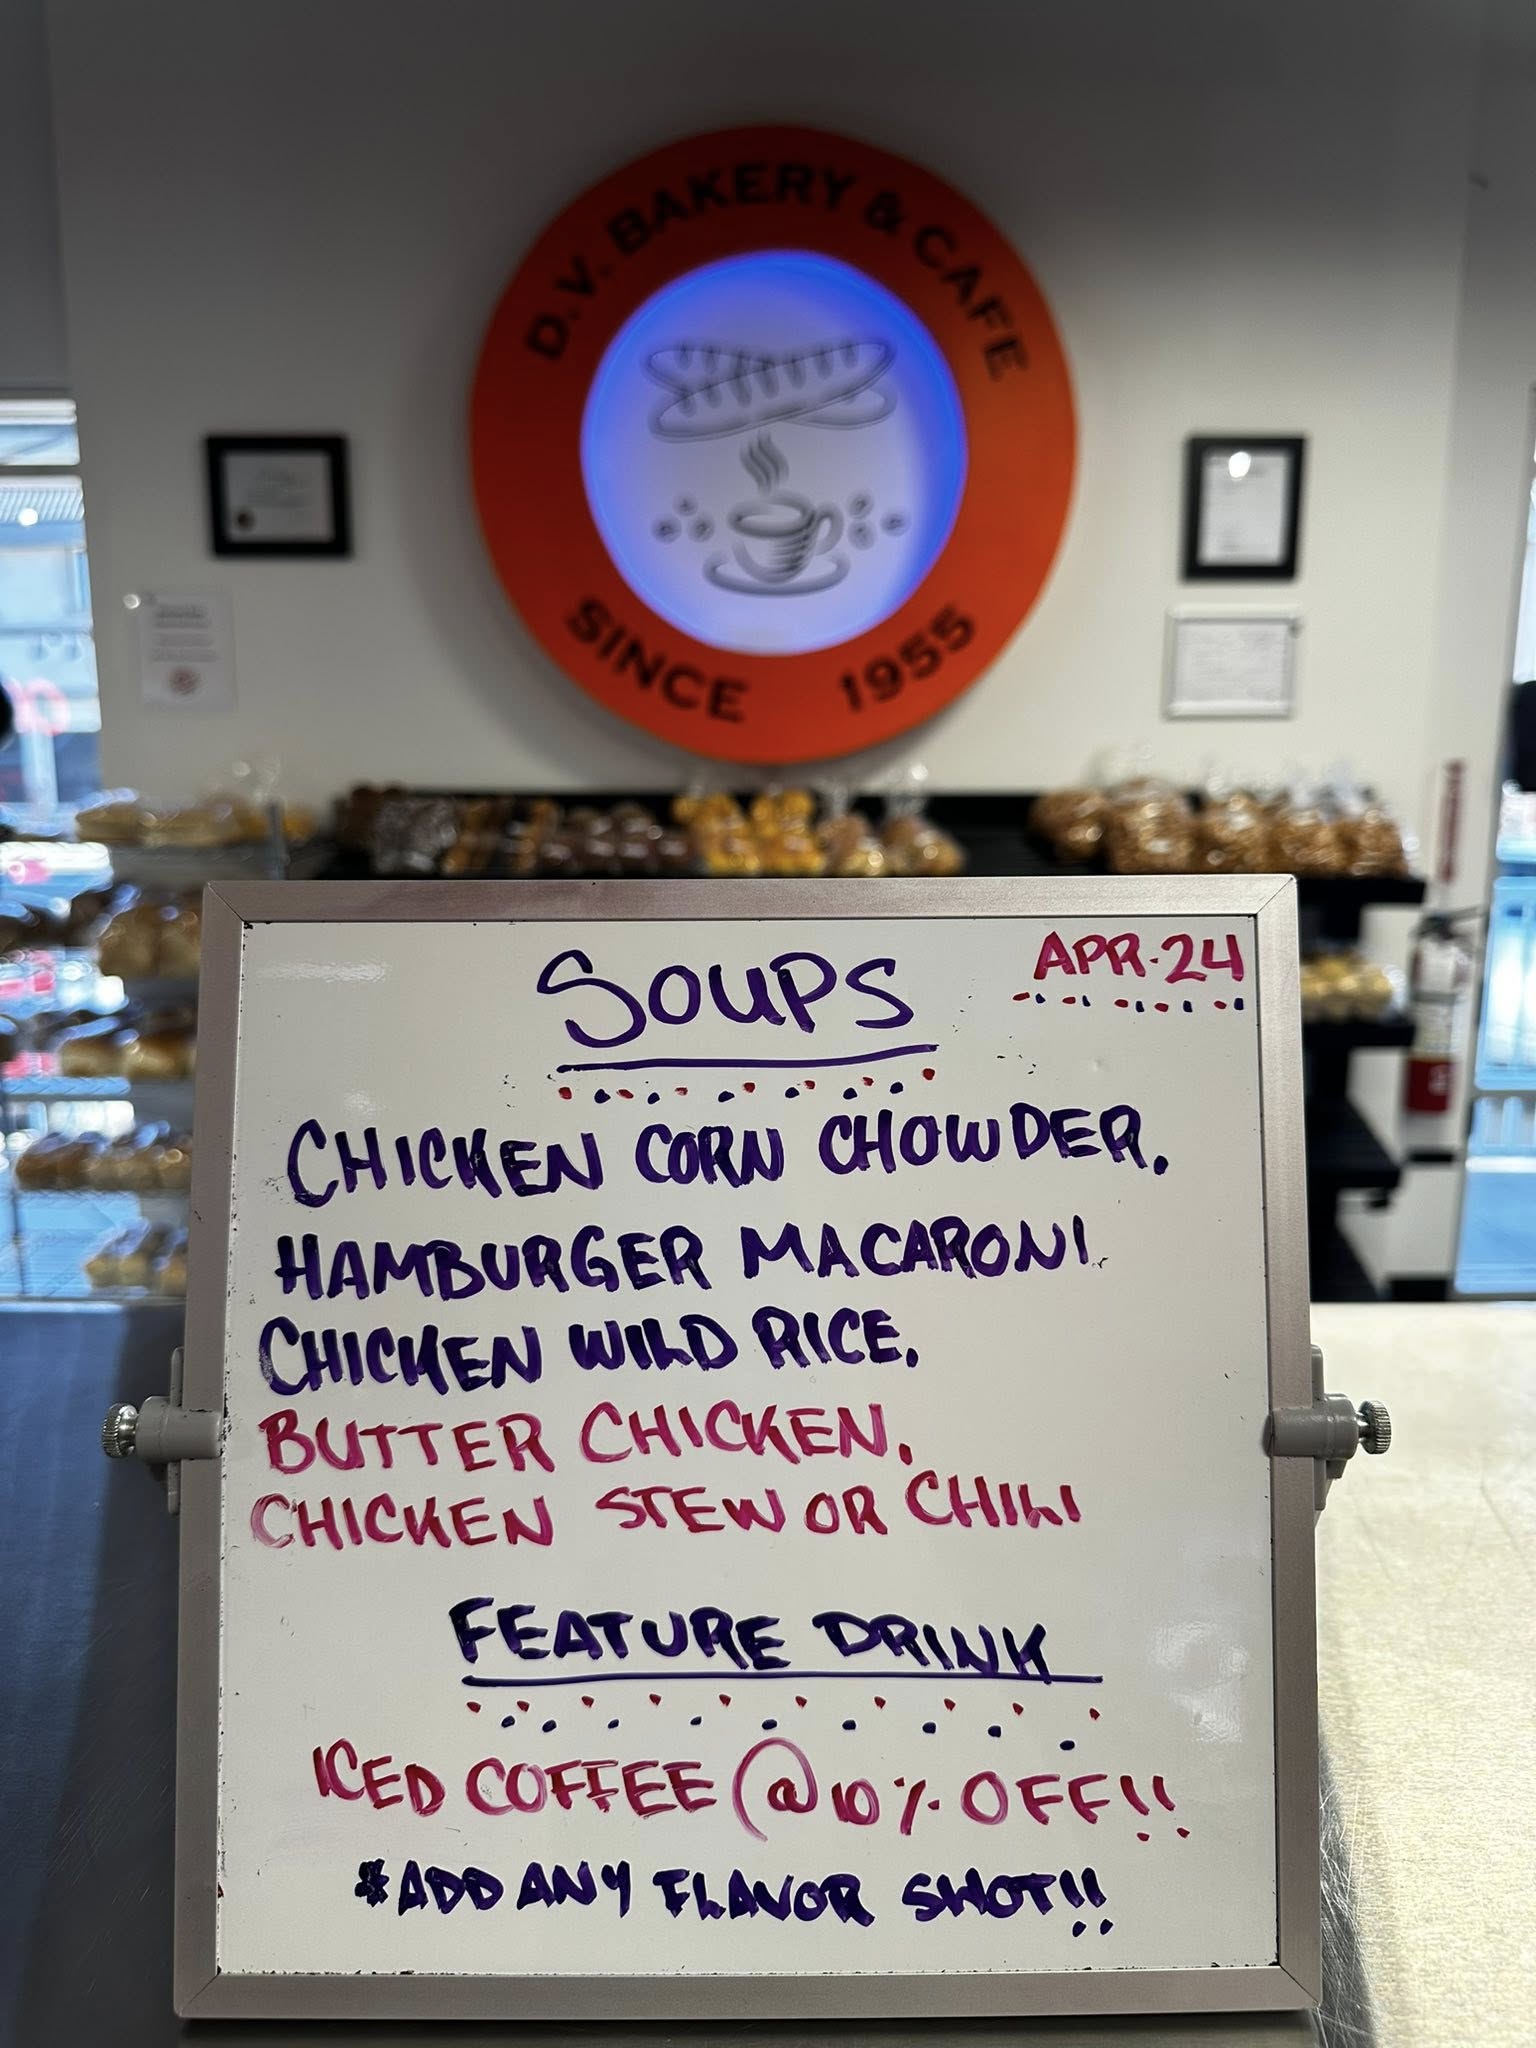 D.V. BAKERY & CAFE
SINCE 1955
SOUPS
APR. 24
CHICKEN CORN CHOWDER.
HAMBURGER MACARONI.
CHICKEN WILD RICE.
BUTTER CHICKEN.
CHICKEN STEW OR CHILI
FEATURE DRINK
ICED COFFEE @ 10% OFF!!
*ADD ANY FLAVOR SHOT!!